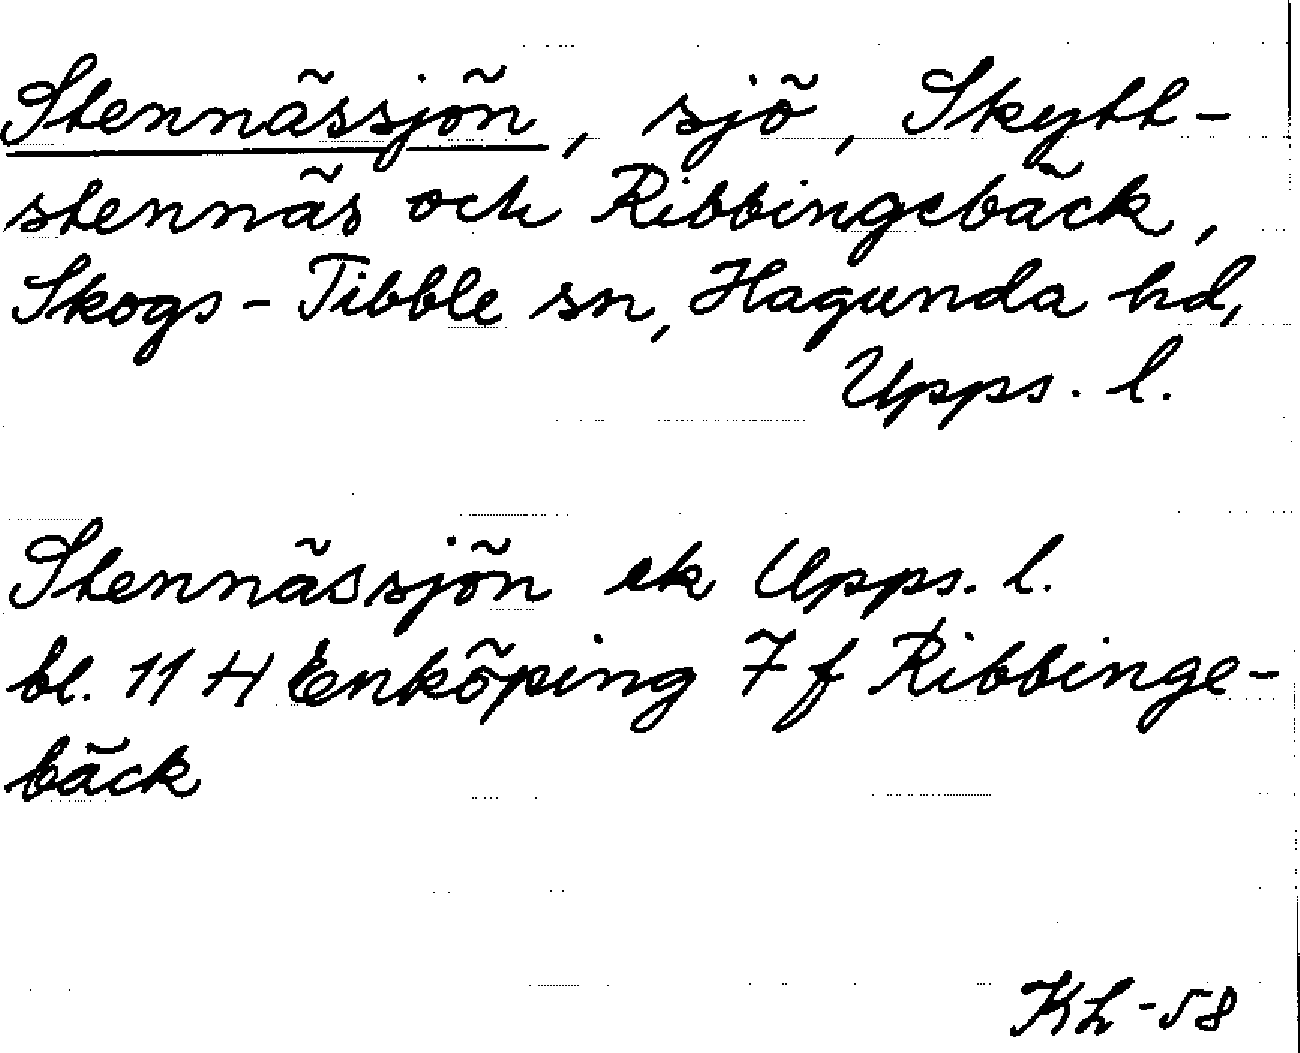 Stennässjön, sjö, Skytt-
stennäs och Ribbingebäck,
Skogs-Tibble sn, Hagunda hd,
Upps. l.
Stennässjön ek Upps. l.
bl. 11 H Enköping 7 f Ribbinge-
bäck
KL -58